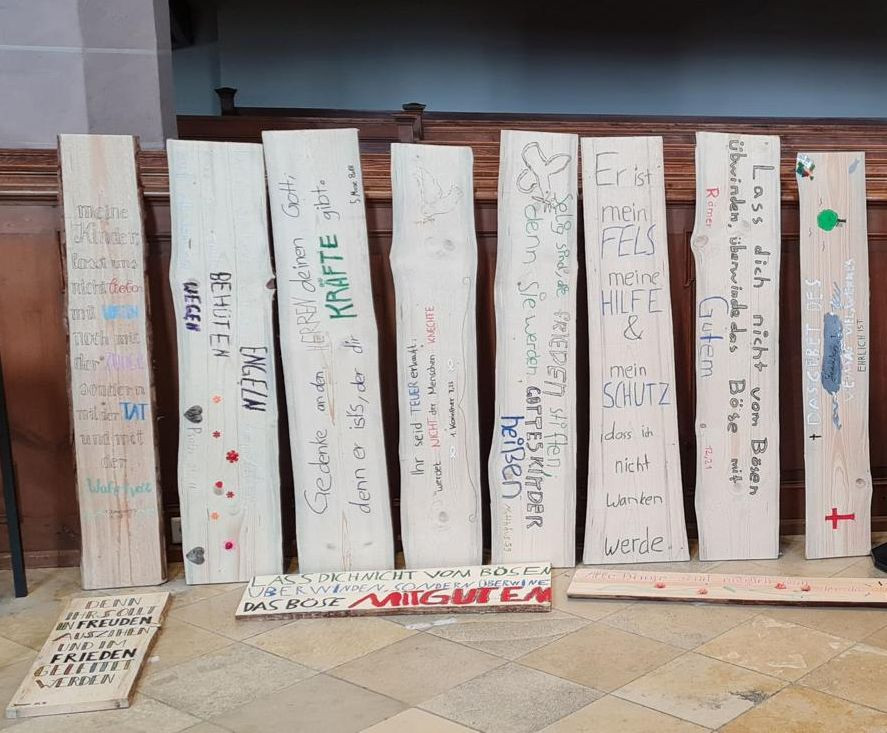 meine
Kinder,
lasst uns
nicht lieben
mit WORTEN
noch mit
der ZUNGE
sondern
mit der TAT
und mit
der
Wahrheit
BEHÜTEN
WEGEN
ENGELN
Gedenke an den HERREN deinen Gott,
denn er ist's, der dir KRÄFTE gibt.
5. Mose 8,18
Ihr seid TEUER erkauft;
werdet NICHT der Menschen KNECHTE
1. Korinther 7,23
Selig sind, die FRIEDEN stiften
denn sie werden GOTTES KINDER
heißen
Matthäus 5,9
Er ist
mein
FELS
meine
HILFE
&
mein
SCHUTZ
dass ich
nicht
wanken
werde.
Lass dich nicht vom Bösen
übwinden, überwinde das Böse mit
Gutem
Römer 12,21
DAS GEBET DES
EHRLICH IST
DENN
IHR SOLLT
IN FREUDEN
AUSZIEHEN
UND IM
FRIEDEN
GELEITET
WERDEN
LASS DICH NICHT VOM BÖSEN
ÜBERWINDEN SONDERN ÜBERWINE
DAS BÖSE MIT GUTEM